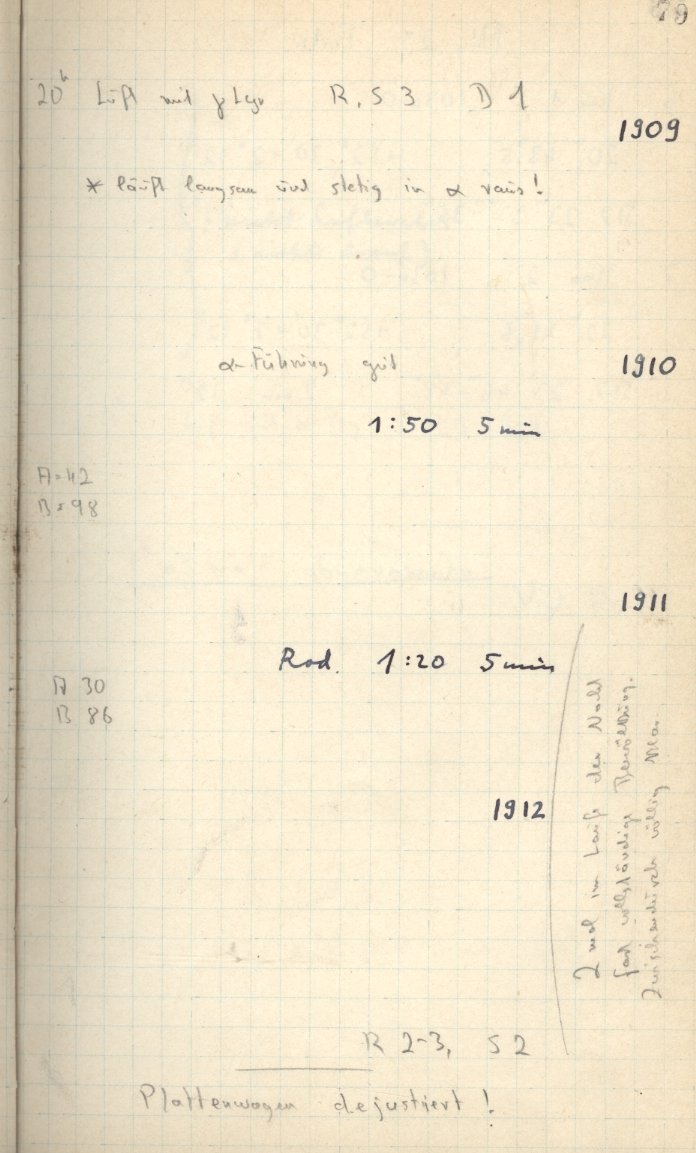 79
20ʰ Luft mit R, S 3 D 1
1909
* läuft langsam und stetig in α raus!
α-Führung gut
1910
1:50 5 min
A=42
B=98
1911
Rod. 1:20 5 min
A 30
B 86
1912
2 mal im Laufe der Nacht
fast vollständige Bewölkung.
Zwischendurch völlig klar.
R 2-3, S 2
Plattenwagen dejustiert!